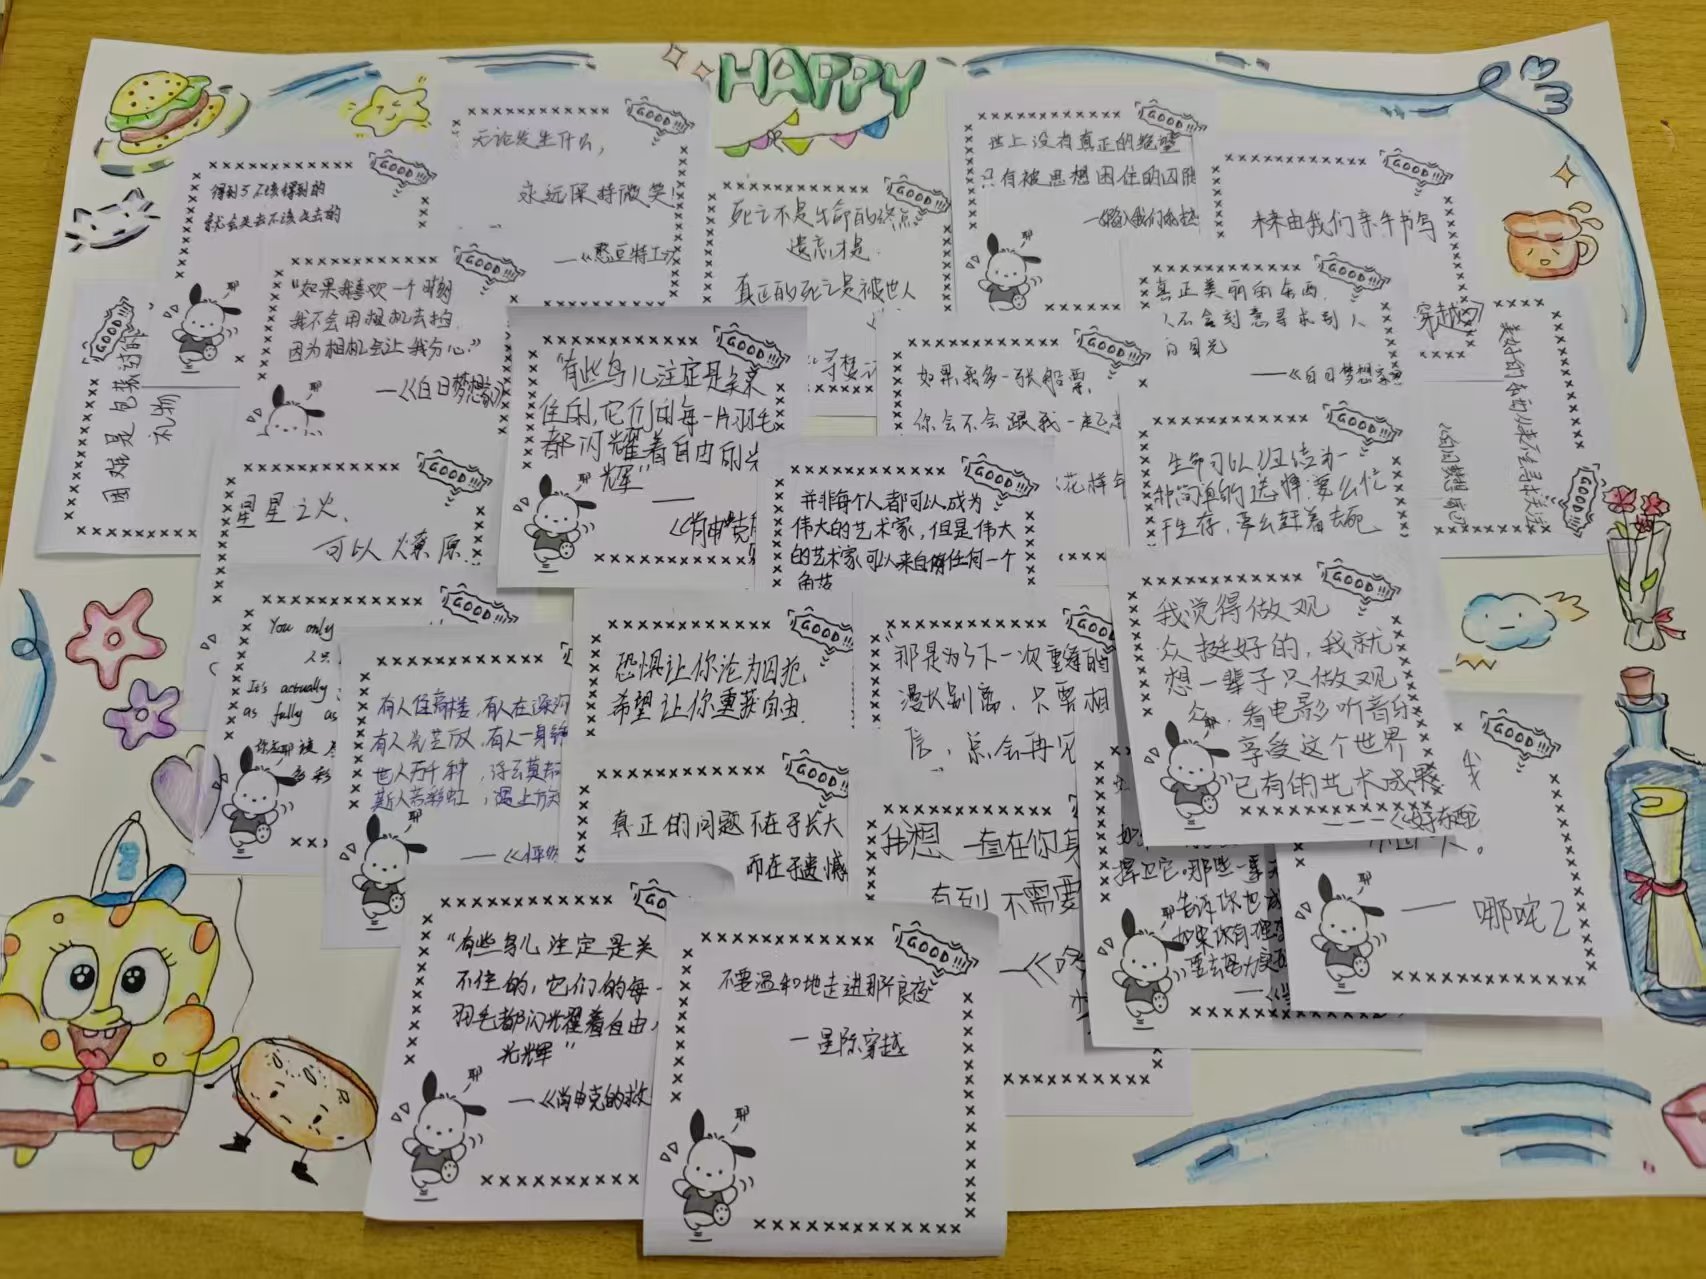 HAPPY
GOOD!!!
无论发生什么，
永远保持微笑
——《憨豆特工
GOOD!!!
得到了不该得到的
就会失去不该失去的
耶
GOOD!!!
死亡不是生命的终点
遗忘才是.
真正的死亡是被世人
寻梦
GOOD!!!
世上没有真正的绝望
只有被思想困住的囚
耶
GOOD!!!
未来由我们亲手书写
穿越
GOOD!!!
困难是包装过的
礼物
GOOD!!!
"如果我喜欢一个时刻
我不会用相机去拍.
因为相机会让我分心."
——《白日梦想家
耶
GOOD!!!
"有些鸟儿注定是关
住的,它们的每一片羽毛
都闪耀着自由的光
辉"——
《肖申克
耶
GOOD!!!
如果,我多一张船票,
你会不会跟我一起
花样年
GOOD!!!
真正美丽的东西,
人不会刻意寻求别人
的目光
——《白日梦想家
GOOD!!!
美好的东西从来不寻求关注
GOOD!!!
星星之火、
可以燎原.
GOOD!!!
并非每个人都可以成为
伟大的艺术家，但是伟大
的艺术家可以来自任何一个
角落
GOOD!!!
生命可以归结为一
种简单的选择:要么忙
于生存,要么赶着去死
GOOD!!!
You only
人只
It's actually
as fully as
多彩
耶
有人住高楼，有人在深沟
有人光芒万丈，有人一身锈
世人万千种，浮云莫去
斯人若彩虹，遇上方
耶
GOOD!!!
恐惧让你沦为囚犯,
希望让你重获自由.
GOOD
"那是为了下一次重逢的
漫长别离，只要相
信，总会再见
GOOD!!!
我觉得做观
众挺好的，我就
想一辈子只做观
众，看电影听音乐
享受这个世界
已有的艺术成果
——《好东西
耶
GOOD!!!
真正的问题不在于长大
而在于遗憾
我想一直在你身
有到不需要
捍卫它.那些一事无
告诉你也成
如果你有理想
要去努力实现
耶
GOOD!!!
——哪吒2
耶
GOOD
"有些鸟儿注定是关
不住的，它们的每一
羽毛都闪耀着自由
光辉"
——《肖申克的救
耶
GOOD!!!
不要温和地走进那个良夜
—星际穿越
耶